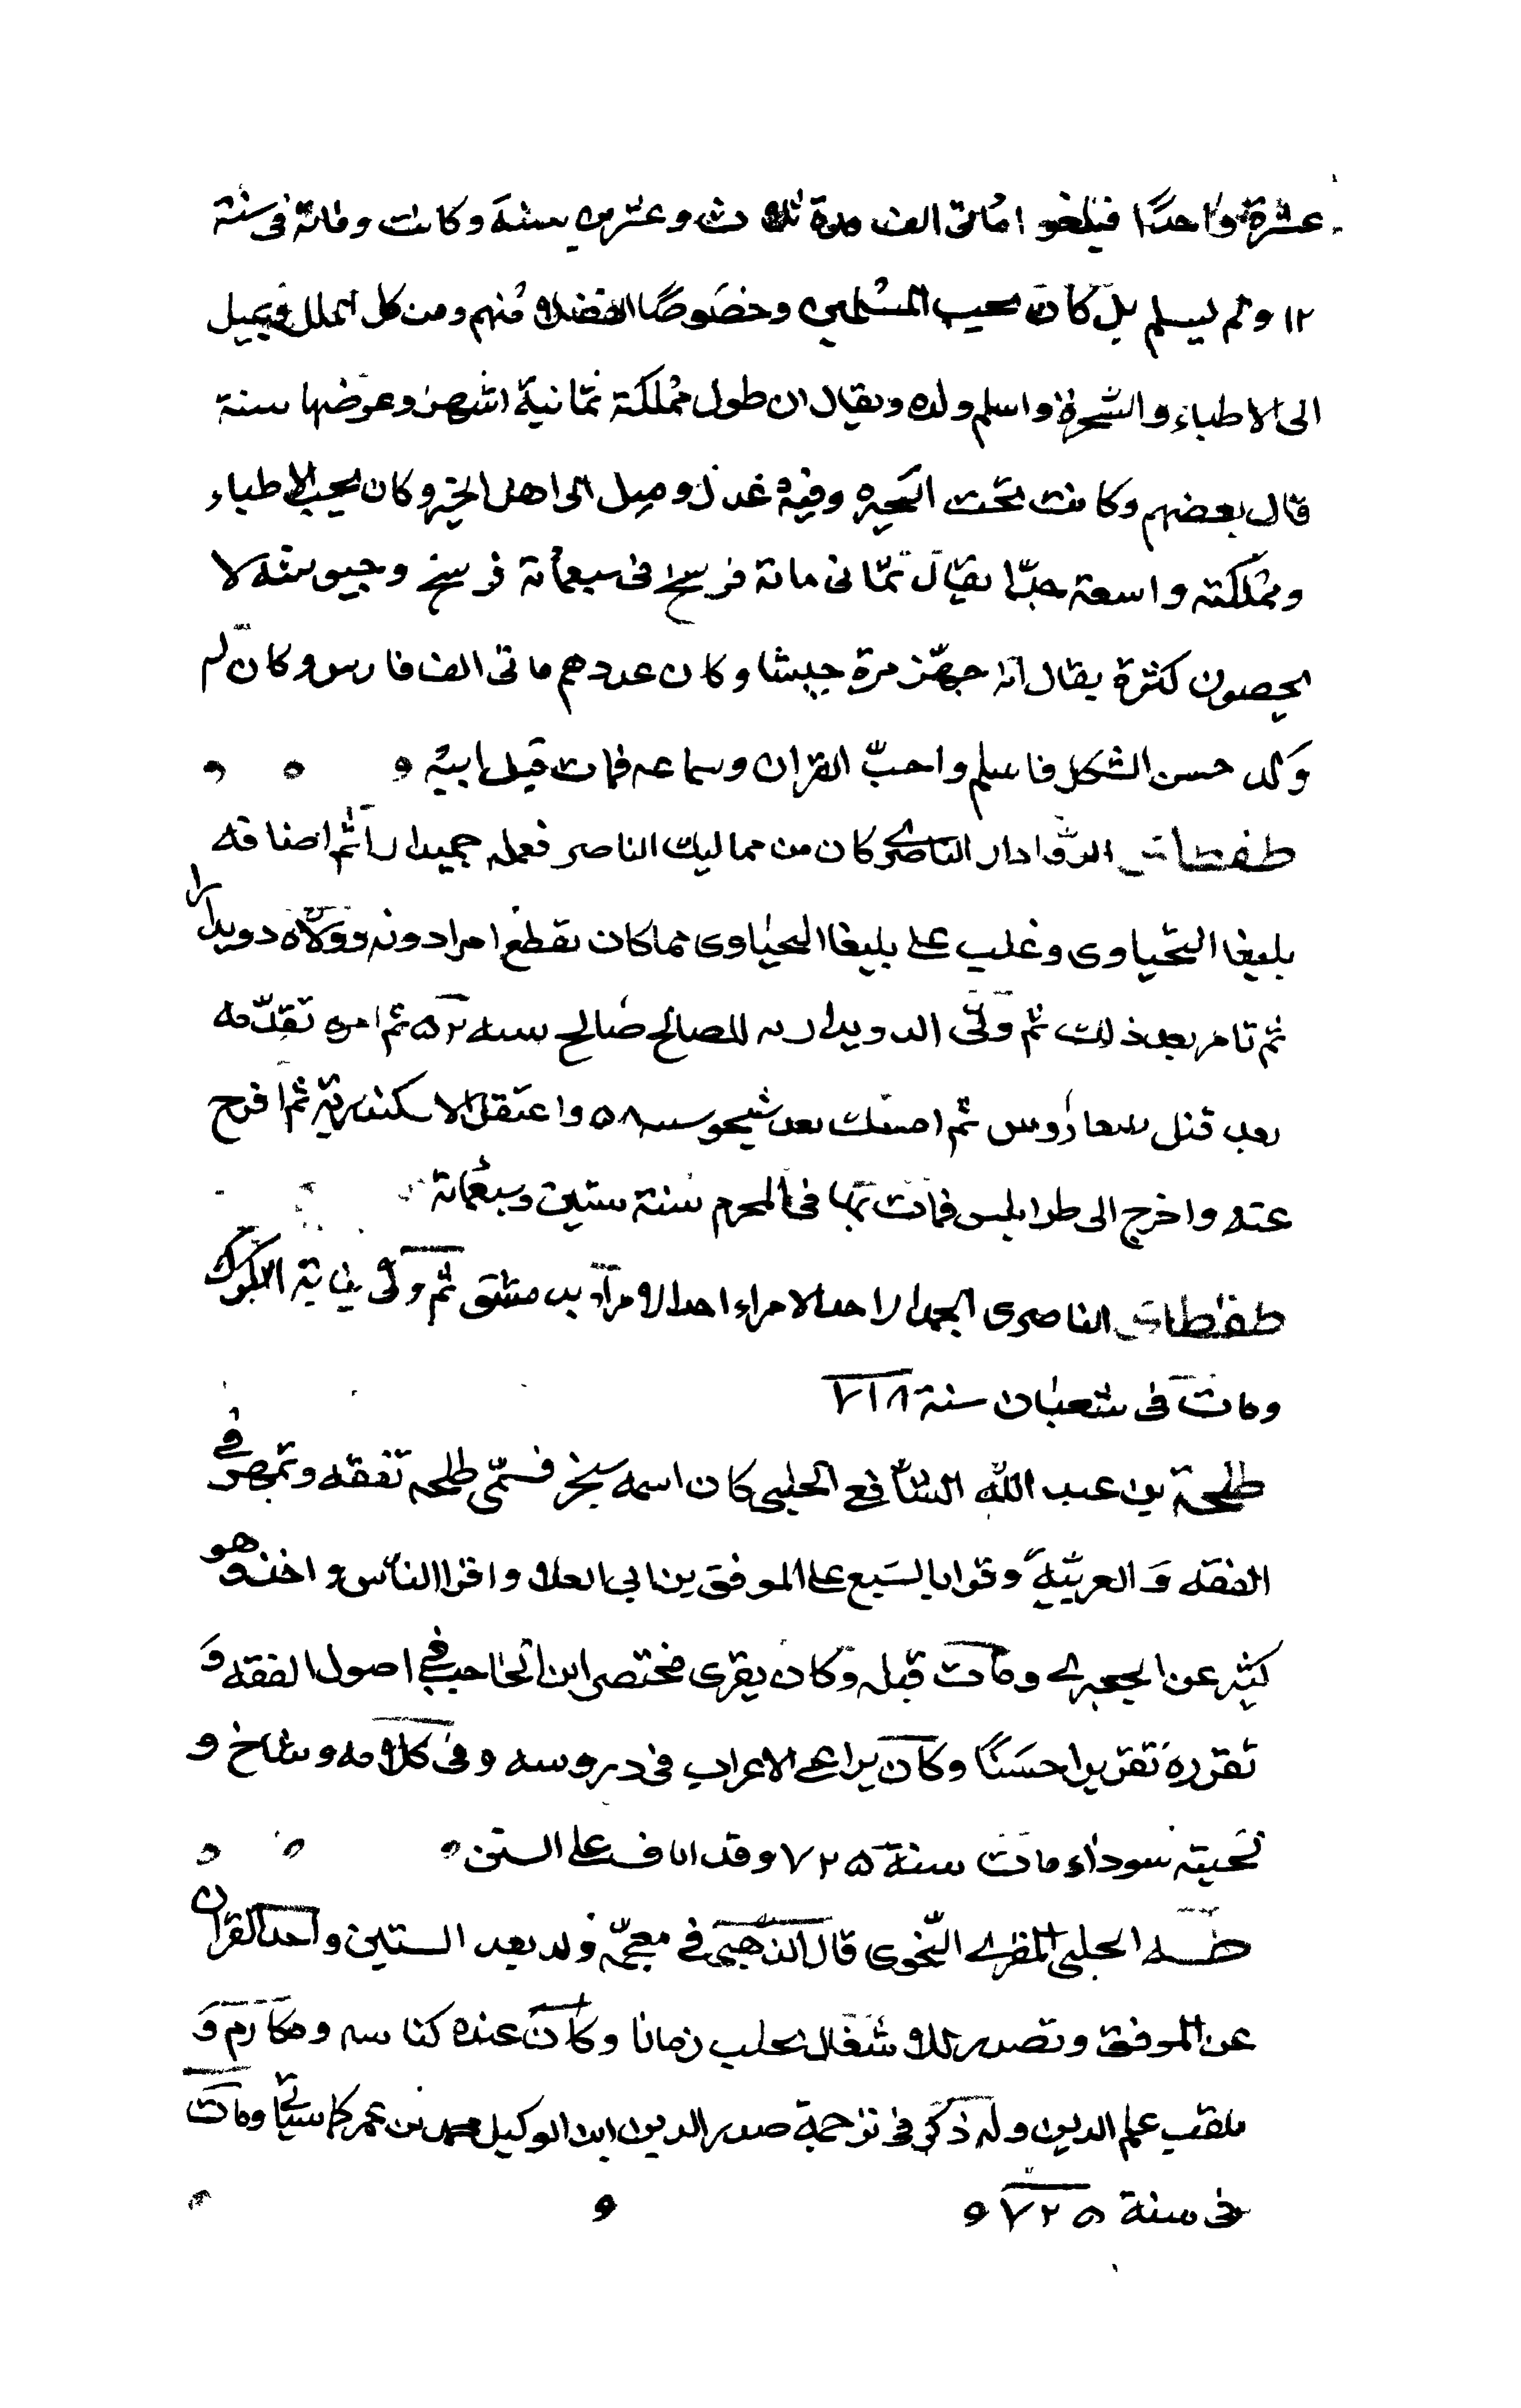 عشرة واحدًا فبلغوا مائتى الف مدة ثلاث وعشرين سنة وكانت وفاته فى سنة
١٢ ولم يسلم بل كان يحب المسلمين وخصوصًا الفضلاء منهم ومن كل الملل ويميل
الى الاطباء والسحرة واسلم ولده ويقال ان طول مملكته ثمانية اشهر وعرضها سنة
قال بعضهم وكانت تحت وفيه عدل وميل الى اهل الخير وكان يحب الاطباء
ومملكته واسعة جدّا يقال ثمانى مائة فرسخ فى سبعمائة فرسخ وجيوشه لا
يحصون كثرة يقال انه جهّز مرة جيشا وكان عددهم مائتى الف فارس وكان له
ولد حسن الشكل فاسلم واحبّ القران وسماعه فمات قبل ابيه
طفطاى الدوادار الناصرى كان من مماليك الناصر فعمله جمدارا ثم اضافه
بلبغا اليحياوى وغلب على يلبغا اليحياوى فما كان يقطع امرا دونه وولاه دويدارا
ثم تامر بعد ذلك ثم ولّى الدويداريه للصالح صالح سنه ٥٢ ثم امره تقدّمه
بعد قتل ثم امسك بعد شيخو سنه ٥٨ واعتقل الاسكندرية ثم افرج
عنه واخرج الى طرابلس فمات بها فى المحرم سنة ستين وسبعمائة
طفطاى الناصرى الجمدار احد الامراء احد الامراء بدمشق ثم ولّى نيابة الكرك
ومات فى شعبان سنة ٧١٨
طلحة بن عبد الله الشافعى الحلبى كان اسمه سنجر فسمّى طلحه تفقه وتمهر فى
الفقه وَالعربيّة وقرا بالسبع على الموفق بن ابى العلاء واقرا الناس واخذ هو
كثير عن الجعبرى ومات قبله وكان يقرى مختصر ابن الحاجب فى اصول الفقه وَ
تقرره تقريرا حسَنًا وكان يراعى الاعراب فى دروسه وفى كلامه وشاخ و
لحيته سوداء مات سنة ٧٢٥ وقد اناف على الستين
طـه الحلبى المقرى النّحوى قال الذهبى فى معجمه ولد بعد الستين واخذ القران
عن الموفق وتصدر للاشغال بحلب زمانا وكان عنده كتاسه ومكارم وَ
يلقب علم الدين وله ذكر فى ترجمة صدر الدين ابن الوكيل محمد بن عمر كما سياتى ومات
فى سنة ٧٢٥